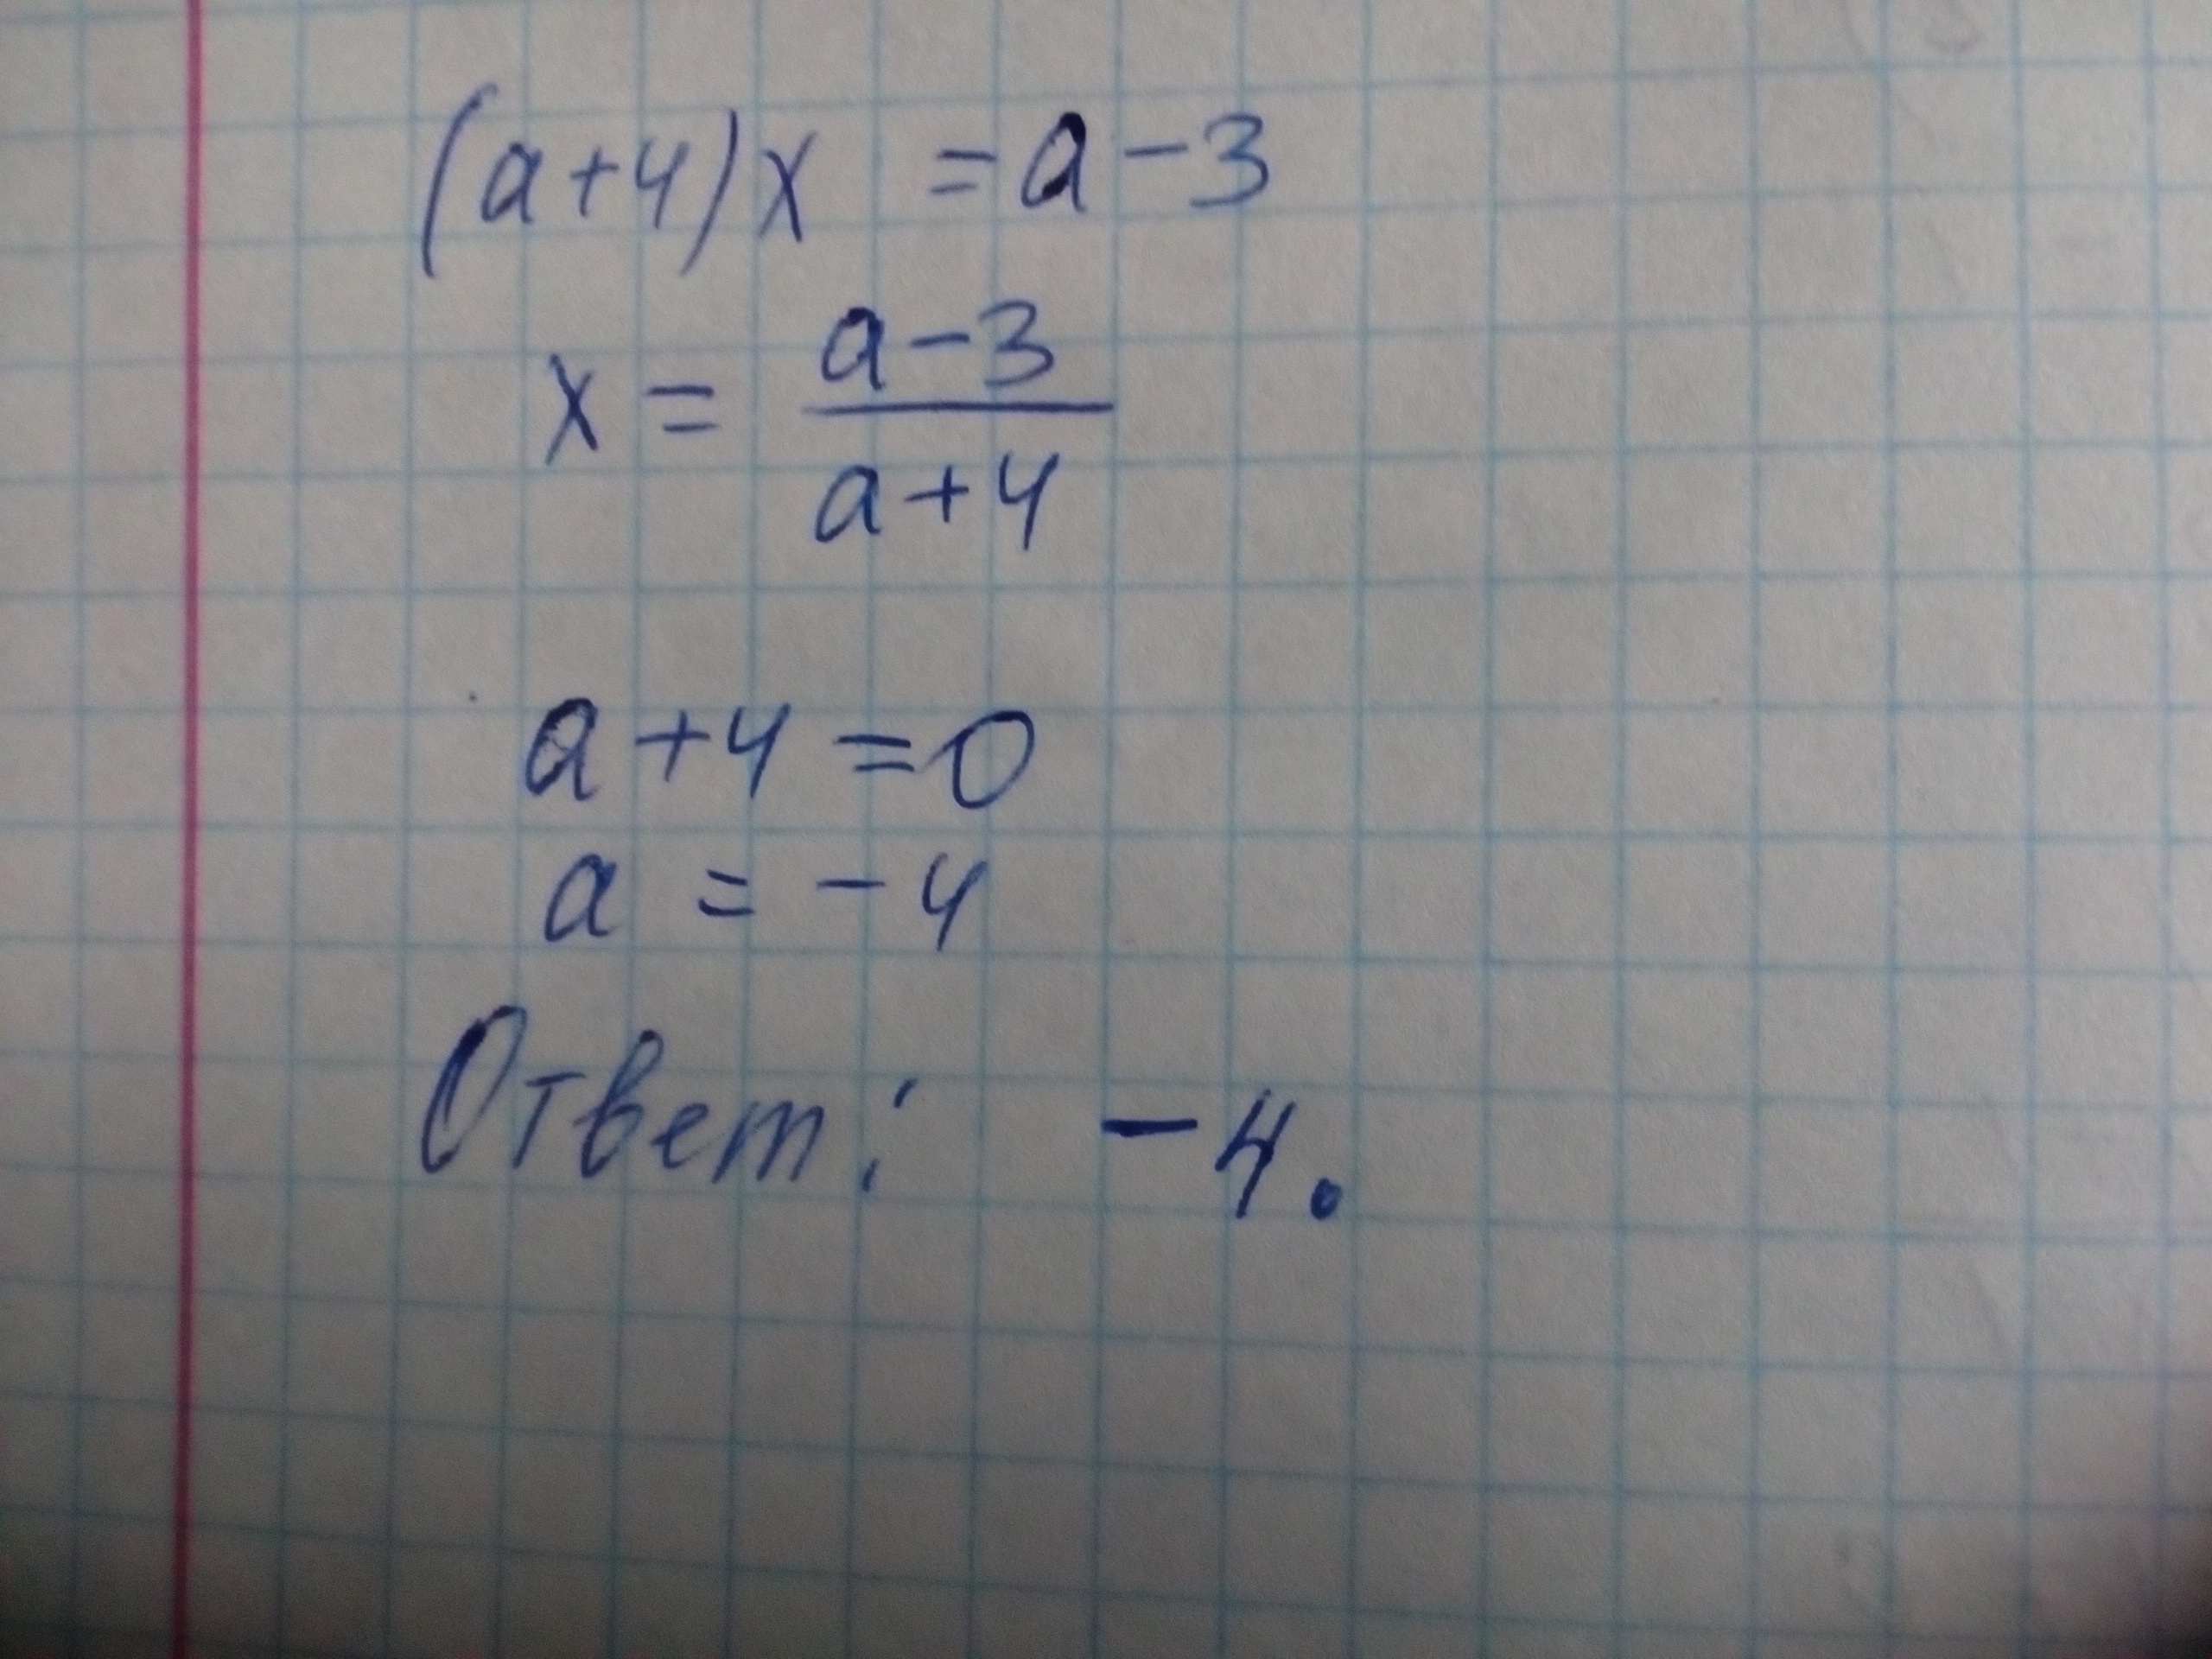 (a+4)x = a-3
x = a-3
a+4
a+4=0
a = -4
Ответ: -4.